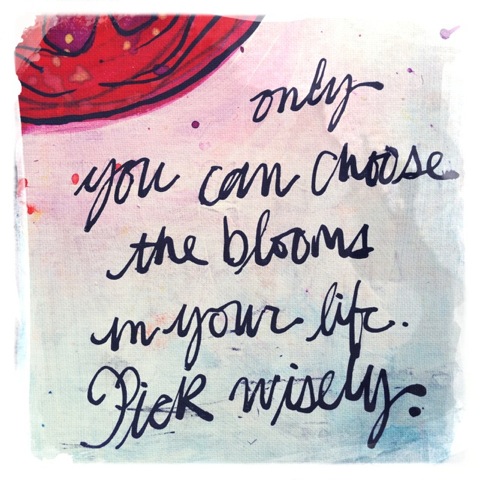 only
you can choose
the blooms
in your life.
Pick wisely.